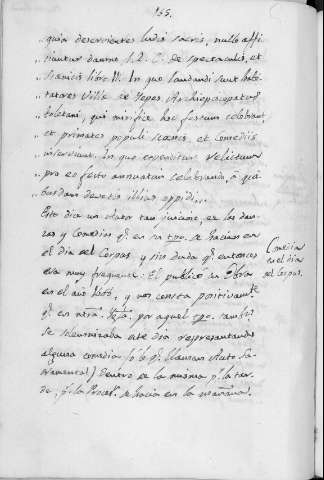 155.
„ quia deservientes ludis sacris, nullo affi
„ ciuntur damno L.2. C. de spectaculis, et
„ scænicis libr. In quo laudandi sunt habi
„ tatores Villæ de Yepes Archiepiscopatus
„ toletani, qui mirifice hoc festum celebrant
„ et primates populi scænis et comediis
„ inserviunt. In quo relictum
„ pro eo festo annuatim celebrando, à qui
„ busdam devotis illius oppidi...
Esto dia un autor tan juicioso, de las dan
zas y Comedias q.e en su tpo. se hacian en
el dia del Corpus, y sin duda q.e entonces
era muy frequente: El publicó su Obra
en el año y nos consta positivam.te
q.e en ntra. por aquel tpo. tambn.
se solemnizaba este dia representando
alguna comedia (ò lo q.e llaman Auto Sa-
cramental) dentro de la misma p.r la tar-
de, p.s la Proces.n se hacia en la mañana.
Comedias
en el dia
del Corpus.